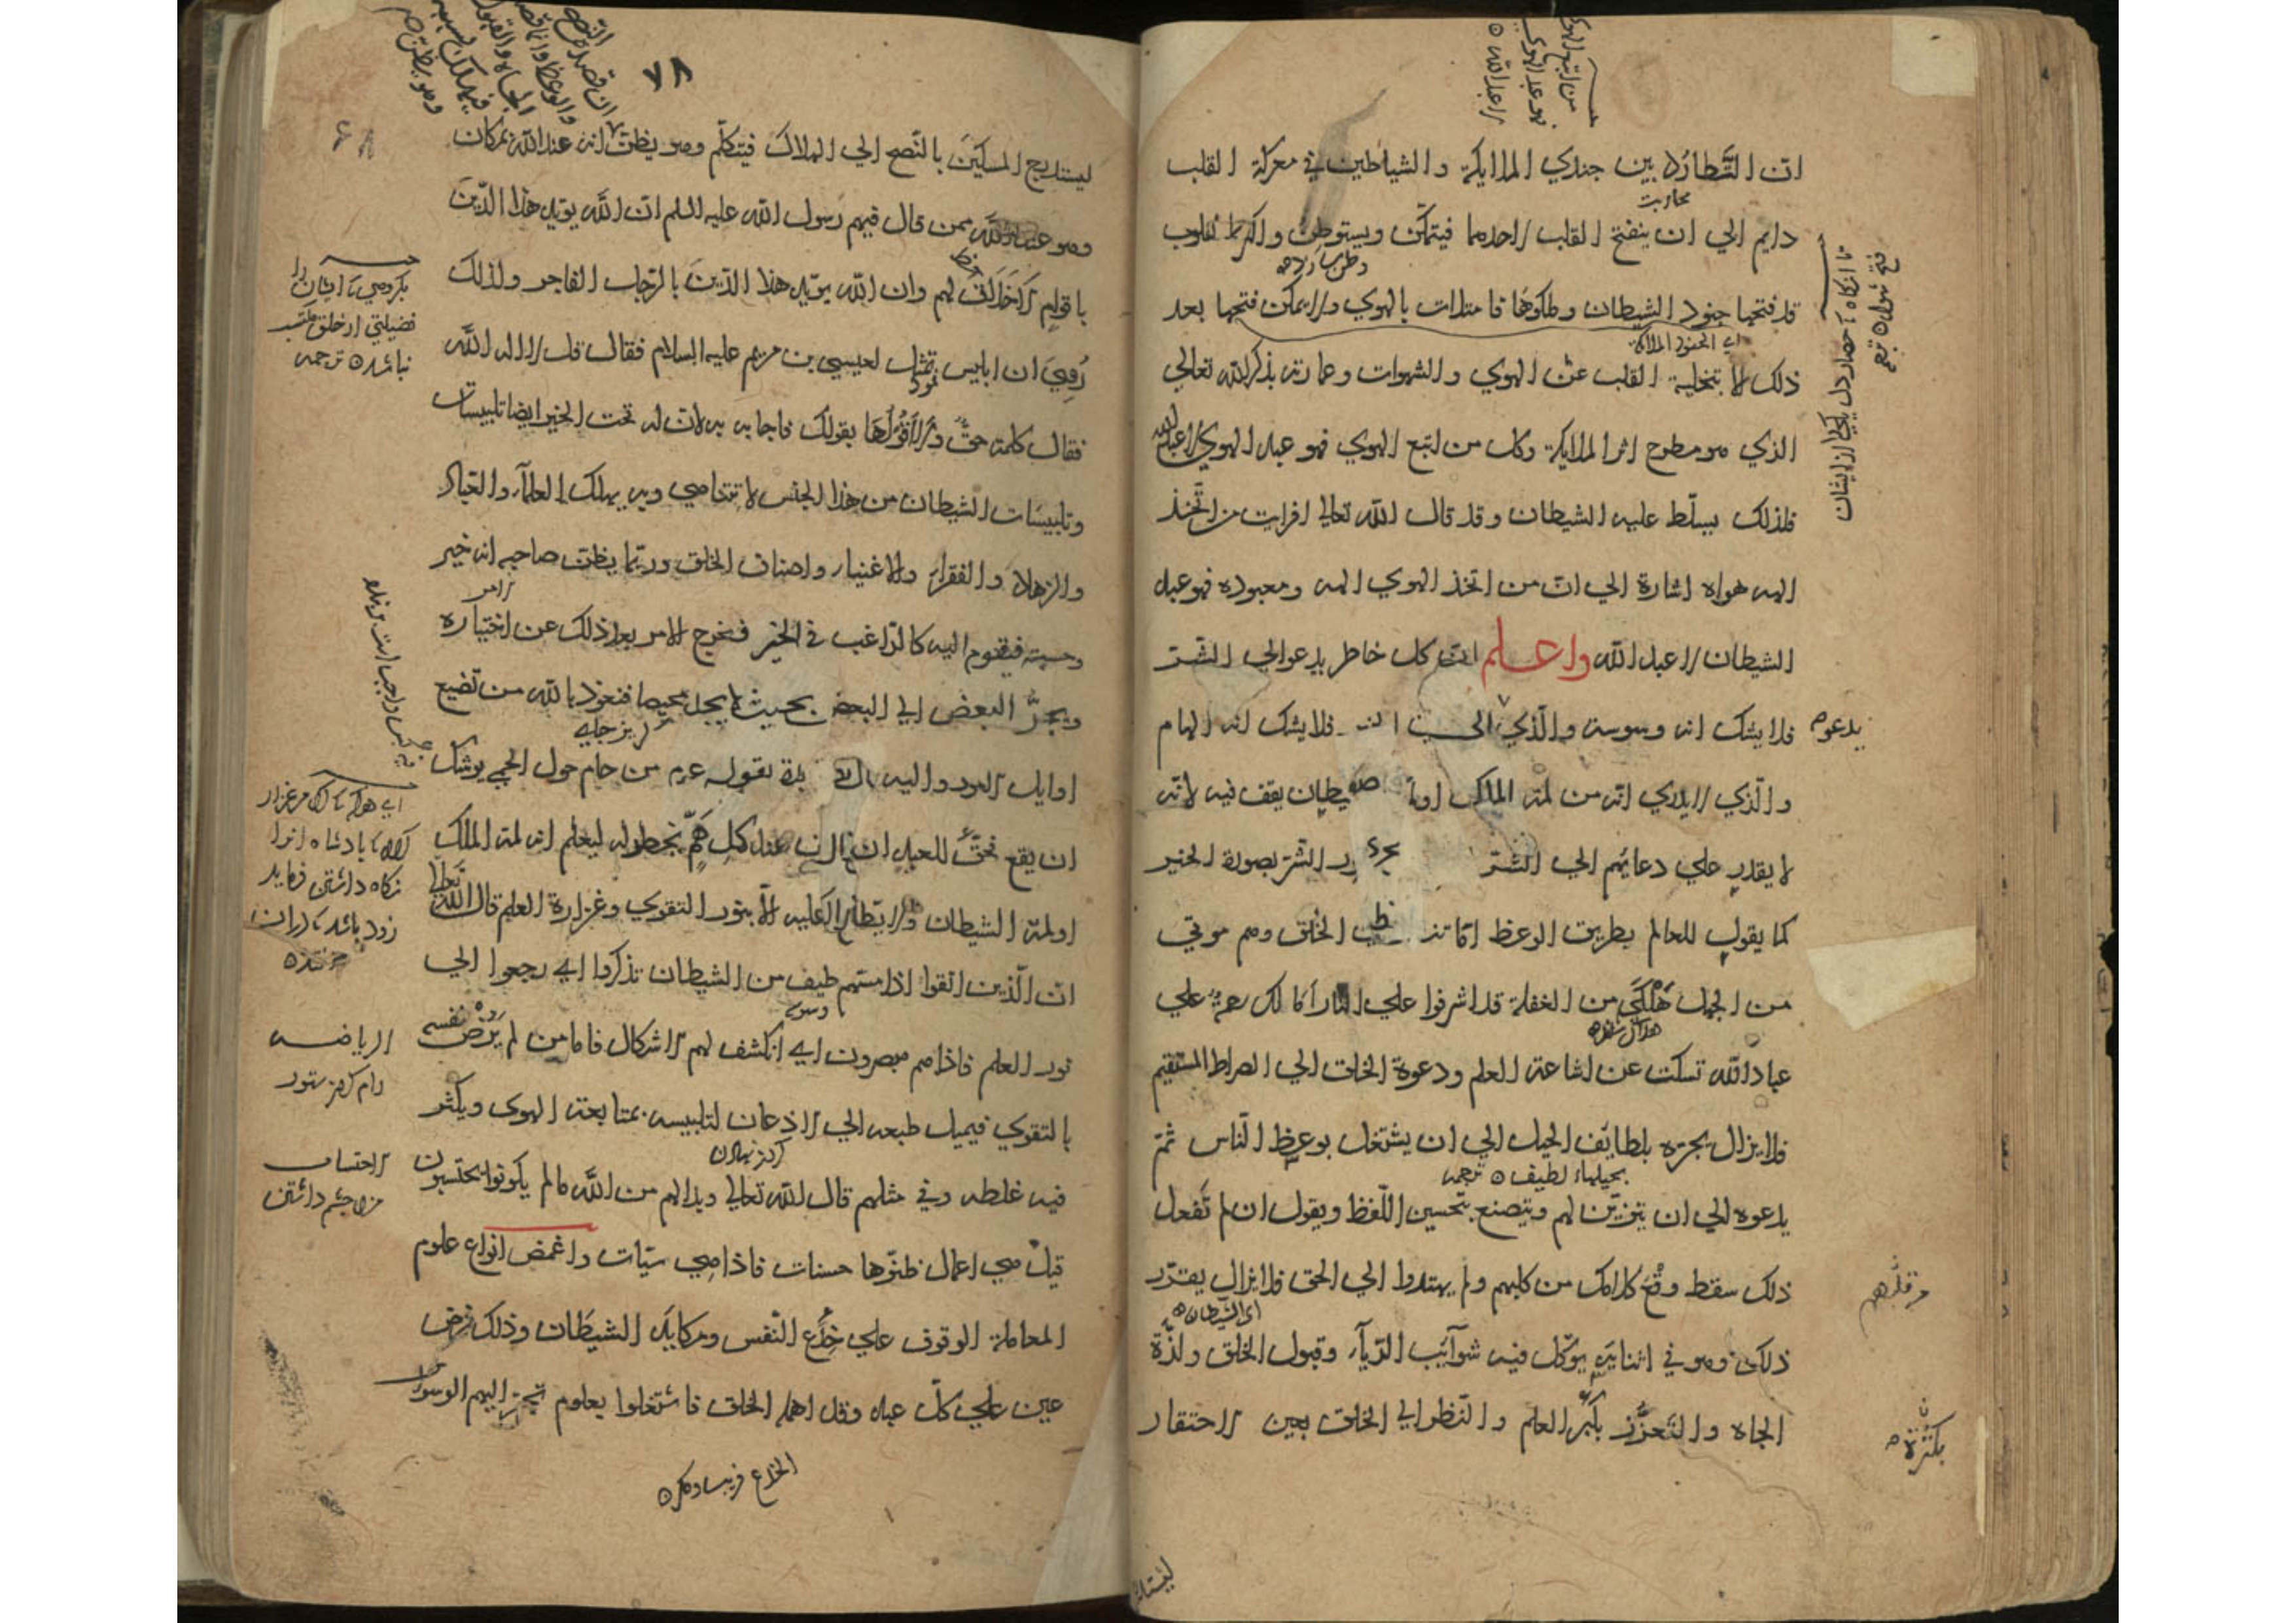 ان التطارد بين جندي الملايكة والشياطين في معركة القلب
محاربت
دايم الي ان ينفتح القلب لاحدهما فيتمكن ويستوطن واكثر القلوب
قد فتحها جنود الشيطان وملكوها فامتلات بالهوي ولا يمكن فتحها بعد
اي الجنود الملائكة
ذلك الا بتخلية القلب عن الهوي والشهوات وعمارته بذكر الله تعالي
الذي هو مطرح اثر الملايكة وكل من اتبع الهوي فهو عبد الهوي لا عبد الله
فلذلك يسلّط عليه الشيطان وقد قال الله تعالي افرايت من اتّخذ
الهه هواه اشارة الي انّ من اتخذ الهوي الهه ومعبوده فهو عبد
الشيطان لا عبد الله واعلم ان كل خاطر يدعو الي الشّر
فلا يشك انه وسوسة والّذي الي فلا يشك انه الهام
يدعو
والّذي لا يدري انّه من لمة الملك او يقف فيه لانّه
لا يقدر علي دعائهم الي الشّر الشّر بصورة الخير
كما يقول للعالم بطريق الوعظ اما تنظر الخلق وهم موتي
من الجهل هَلْكَي من الغفلة قد اشرفوا علي النار اما لك رحمة علي
عباد الله تسكت عن اشاعة العلم ودعوة الخلق الي الصراط المستقيم
فلا يزال يجرّه بلطايف الحيل الي ان يشتغل بوعظ النّاس ثمّ
بحيلهاء لطيف ترجمه
يدعوه الي ان يتزيّن لهم ويتصنع بتحسين اللّفظ ويقول ان لم تَفعل
ذلك سقط وقع كلامك من قلبهم ولم يهتدوا الي الحق فلا يزال يقرّر
من قلبهم
اي الشيطان
ذلك وهو في اثنايه يوكّل فيه شوائب الرّياء وقبول الخلق ولذّة
الجاه والتعزّز بكثرة العلم والنّظر الي الخلق بعين الاحتقار
بكثرة
من اتبع الهوي
فهو عبد الهوي
لا عبد الله
٧٨
ليستدرج المسكينَ بالنّصح الي الهلاك فيتكلّم وهو يظنّ انه عند الله بمكان
وهو عند الله ممن قال فيهم رسول الله عليه السلم انّ الله يؤيّد هذا الدّين
باقوام لا خَلاقَ لهم وان الله يؤيّد هذا الدّينَ بالرّجل الفاجر ولذلك
رُوِيَ ان ابليس تمثل لعيسي بن مريم عليه السلام فقال قل لا اله الا الله
فقال كلمة حقٌّ ولا اَقُوْلُهَا بقولك فاجابه به لان له تحت الخير ايضا تلبيسات
وتلبيسات الشيطان من هذا الجنس لا تتناهي وبه يهلك العلمآء والعبّاد
والزهاد والفقراء والاغنياء واصناف الخلق وربّما يظن صاحبه انه خير
وحسبة فيقدم اليه كالرّاغب في الخير فيخرج الامر بعد ذلك عن اختياره
ويجرُّ البعض الي البعض بحيث لا يجد محيصا فنعوذ بالله من تضييع
كريزجايي
اوايل الامور واليه بقوله عم من حام حول الحمي يوشك
ان يقع فحقٌّ للعبد ان عند كل هَمّ يخطر له ليعلم انه لمة الملك
او لمة الشيطان ولا يطلع عليه الا بنور التقوي وغزارة العلم قال الله تعالي
انّ الّذين اتقوا اذا مسّهم طيف من الشيطان تذكروا اي رجعوا الي
وسوسه
نور العلم فاذا هم مبصرون اي انكشف لهم الاشكال فاما من لم يرُضْ نفسه
بالتقوي فيميل طبعه الي الاذعان لتلبيسه بمتابعة الهوي ويكثر
فيه غلطه وفي مثلهم قال الله تعالي وبدا لهم من الله ما لم يكونوا يحتسبون
قيل هي اعمال ظنّوها حسنات فاذا هي سيّات واغمض انواع علوم
المعاملة الوقوف علي خِدَع النّفس ومكايد الشيطان وذلك فرض
عين علي كلّ عبد وقد اهمله الخلق فاشتغلوا بعلوم تجرّ اليهم الوسواس
الخداع فريب ومكر
بكروهي كه ايشان را
فضيلتي از خلق
نباشد ترجمه
اي هركه كه مرغزار
كاه پادشاه انرا
نكاه داشتن فرمايد
زود باشد كه دران
الرياضه
رام كردن ستور
الاحتساب
مزد چشم داشتن